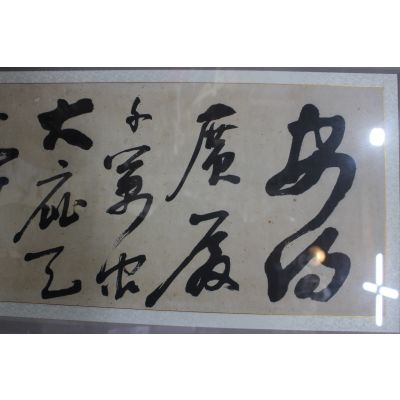 安得
廣厦
千萬間
大庇天